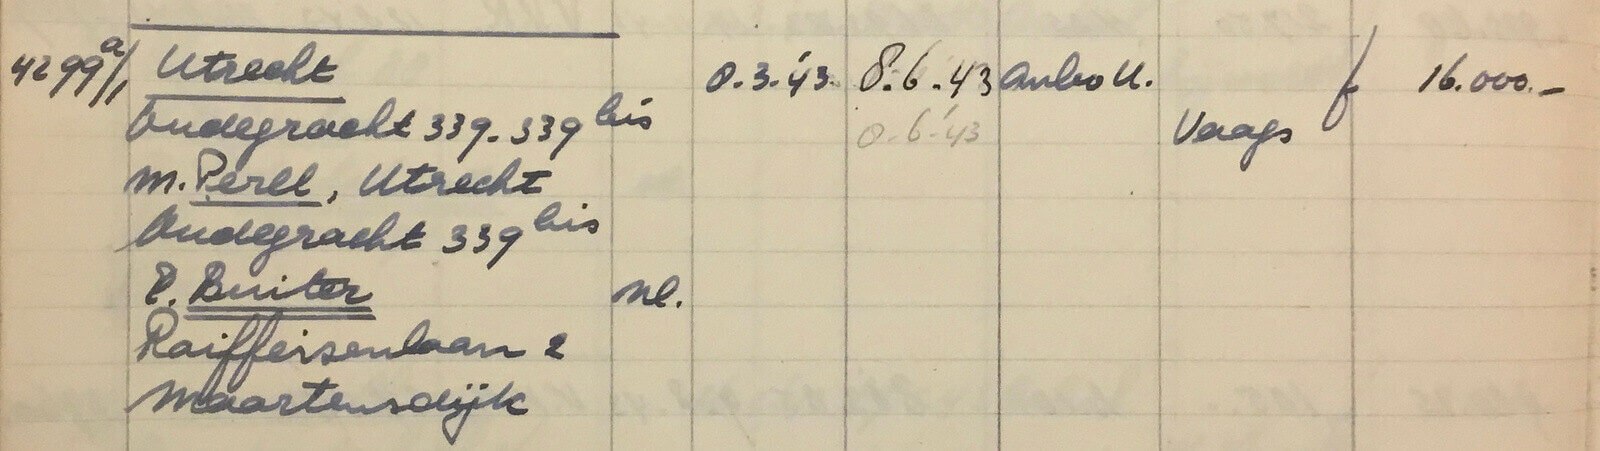 4299a/1 Utrecht 8.3.'43. 8.6.'43 Anbo U. f 16.000.-
Oudegracht 339-339 bis 8.6.'43 Vaags
M. Perll, Utrecht
Oudegracht 339 bis
P. Buiter nl.
Raiffeisenlaan 2
Maartensdijk